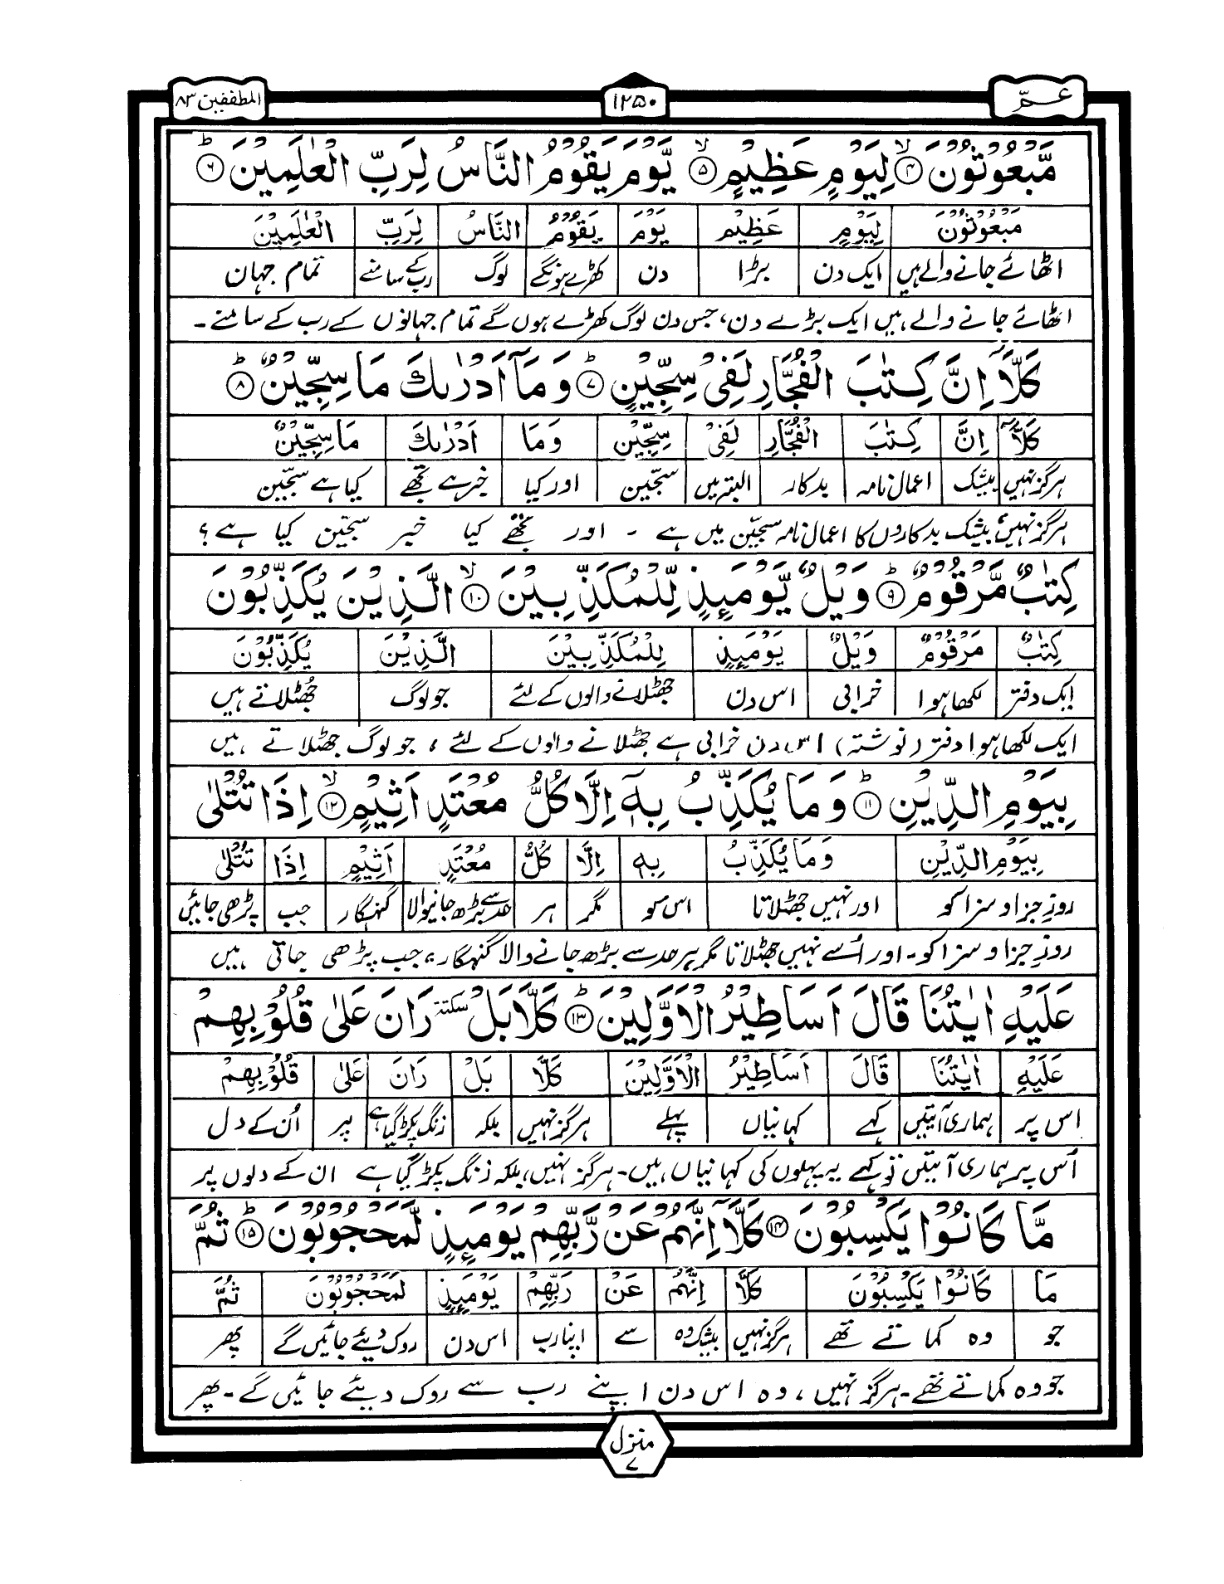 عمّ
۱۲۵۰
المطففین ۸۳
مَّبْعُوْثُوْنَ ۙ﴿۴﴾ لِيَوْمٍ عَظِيْمٍ ۙ﴿۵﴾ يَّوْمَ يَقُوْمُ النَّاسُ لِرَبِّ الْعٰلَمِيْنَ ؕ﴿۶﴾
مَبْعُوْثُوْنَ لِيَوْمٍ عَظِيْمٍ يَوْمَ يَقُوْمُ النَّاسُ لِرَبِّ الْعٰلَمِيْنَ
اٹھائے جانے والے ہیں ایک دن بڑا دن کھڑے ہونگے لوگ رب کے سامنے تمام جہان
اٹھائے جانے والے ہیں ایک بڑے دن، جس دن لوگ کھڑے ہوں گے تمام جہانوں کے رب کے سامنے۔
كَلَّاۤ اِنَّ كِتٰبَ الْفُجَّارِ لَفِىْ سِجِّيْنٍ ؕ﴿۷﴾ وَمَاۤ اَدْرٰىكَ مَا سِجِّيْنٌ ؕ﴿۸﴾
كَلَّاۤ اِنَّ كِتٰبَ الْفُجَّارِ لَفِىْ سِجِّيْنٍ وَمَا اَدْرٰىكَ مَا سِجِّيْنٌ
ہرگز نہیں بیشک اعمال نامہ بدکار البتہ میں سجّین اور کیا خبر ہے تجھے کیا ہے سجّین
ہرگز نہیں بیشک بدکاروں کا اعمال نامہ سجّین میں ہے ۔ اور تجھے کیا خبر سجّین کیا ہے؟
كِتٰبٌ مَّرْقُوْمٌ ؕ﴿۹﴾ وَيْلٌ يَّوْمَئِذٍ لِّلْمُكَذِّبِيْنَ ۙ﴿۱۰﴾ الَّذِيْنَ يُكَذِّبُوْنَ
كِتٰبٌ مَرْقُوْمٌ وَيْلٌ يَوْمَئِذٍ لِلْمُكَذِّبِيْنَ الَّذِيْنَ يُكَذِّبُوْنَ
ایک دفتر لکھا ہوا خرابی اس دن جھٹلانے والوں کے لئے جو لوگ جھٹلاتے ہیں
ایک لکھا ہوا دفتر (نوشتہ) اس دن خرابی ہے جھٹلانے والوں کے لئے، جو لوگ جھٹلاتے ہیں
بِيَوْمِ الدِّيْنِ ؕ﴿۱۱﴾ وَمَا يُكَذِّبُ بِهٖۤ اِلَّا كُلُّ مُعْتَدٍ اَثِيْمٍ ۙ﴿۱۲﴾ اِذَا تُتْلٰى
بِيَوْمِ الدِّيْنِ وَمَا يُكَذِّبُ بِهٖ اِلَّا كُلُّ مُعْتَدٍ اَثِيْمٍ اِذَا تُتْلٰى
روزِ جزا و سزا کو اور نہیں جھٹلاتا اس کو مگر ہر حد سے بڑھ جانیوالا گنہگار جب پڑھی جائیں
روزِ جزا و سزا کو۔ اور اُسے نہیں جھٹلاتا مگر ہر حد سے بڑھ جانے والا گنہگار، جب پڑھی جاتی ہیں
عَلَيْهِ اٰيٰتُنَا قَالَ اَسَاطِيْرُ الْاَوَّلِيْنَ ؕ﴿۱۳﴾ كَلَّا بَلْ سكتة رَانَ عَلٰى قُلُوْبِهِمْ
عَلَيْهِ اٰيٰتُنَا قَالَ اَسَاطِيْرُ الْاَوَّلِيْنَ كَلَّا بَلْ رَانَ عَلٰى قُلُوْبِهِمْ
اس پر ہماری آیتیں کہے کہانیاں پہلے ہرگز نہیں بلکہ زنگ پکڑ گیا ہے پر اُن کے دل
اُس پر ہماری آیتیں تو کہے یہ پہلوں کی کہانیاں ہیں۔ ہرگز نہیں، بلکہ زنگ پکڑ گیا ہے ان کے دلوں پر
مَّا كَانُوْا يَكْسِبُوْنَ ﴿۱۴﴾ كَلَّاۤ اِنَّهُمْ عَنْ رَّبِّهِمْ يَوْمَئِذٍ لَّمَحْجُوْبُوْنَ ؕ﴿۱۵﴾ ثُمَّ
مَا كَانُوْا يَكْسِبُوْنَ كَلَّا اِنَّهُمْ عَنْ رَبِّهِمْ يَوْمَئِذٍ لَمَحْجُوْبُوْنَ ثُمَّ
جو وہ کماتے تھے ہرگز نہیں بیشک وہ سے اپنا رب اس دن روک دیئے جائیں گے پھر
جو وہ کماتے تھے۔ ہرگز نہیں، وہ اس دن اپنے رب سے روک دیئے جائیں گے۔ پھر
منزل
۷